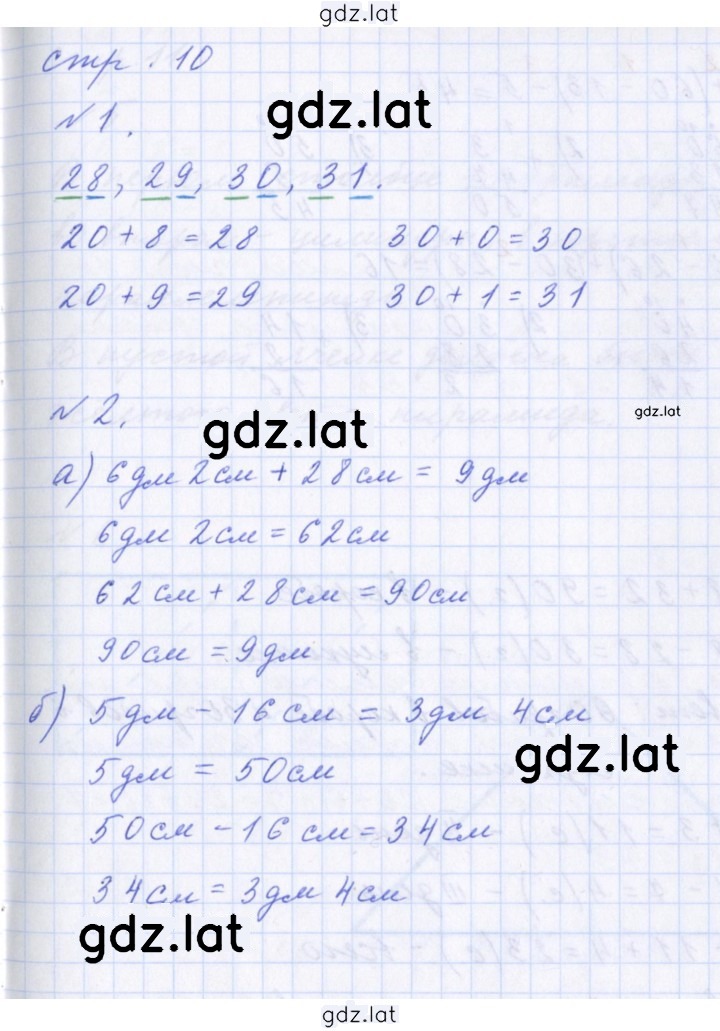 gdz.lat
стр. 10
gdz.lat
№1.
28, 29, 30, 31.
20 + 8 = 28 30 + 0 = 30
20 + 9 = 29 30 + 1 = 31
№2.
gdz.lat
gdz.lat
а) 6дм 2см + 28см = 9дм
6дм 2см = 62см
62см + 28см = 90см
90см = 9дм
б) 5дм - 16см = 3дм 4см
gdz.lat
5дм = 50см
50см - 16см = 34см
34см = 3дм 4см
gdz.lat
gdz.lat